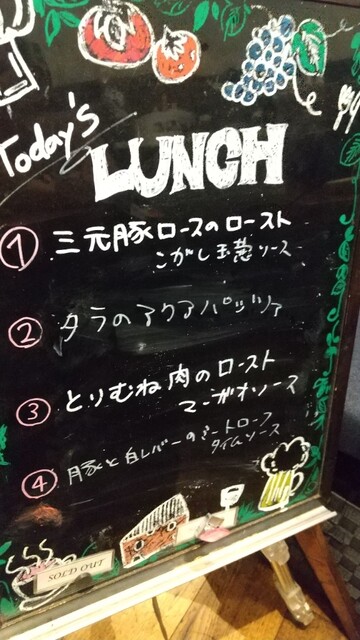 Today's
LUNCH
① 三元豚ロースのロースト
こがし玉葱ソース
② タラのアクアパッツァ
③ とりむね肉のロースト
マーガオソース
④ 豚と白レバーのミートローフ
タイムソース
SOLD OUT